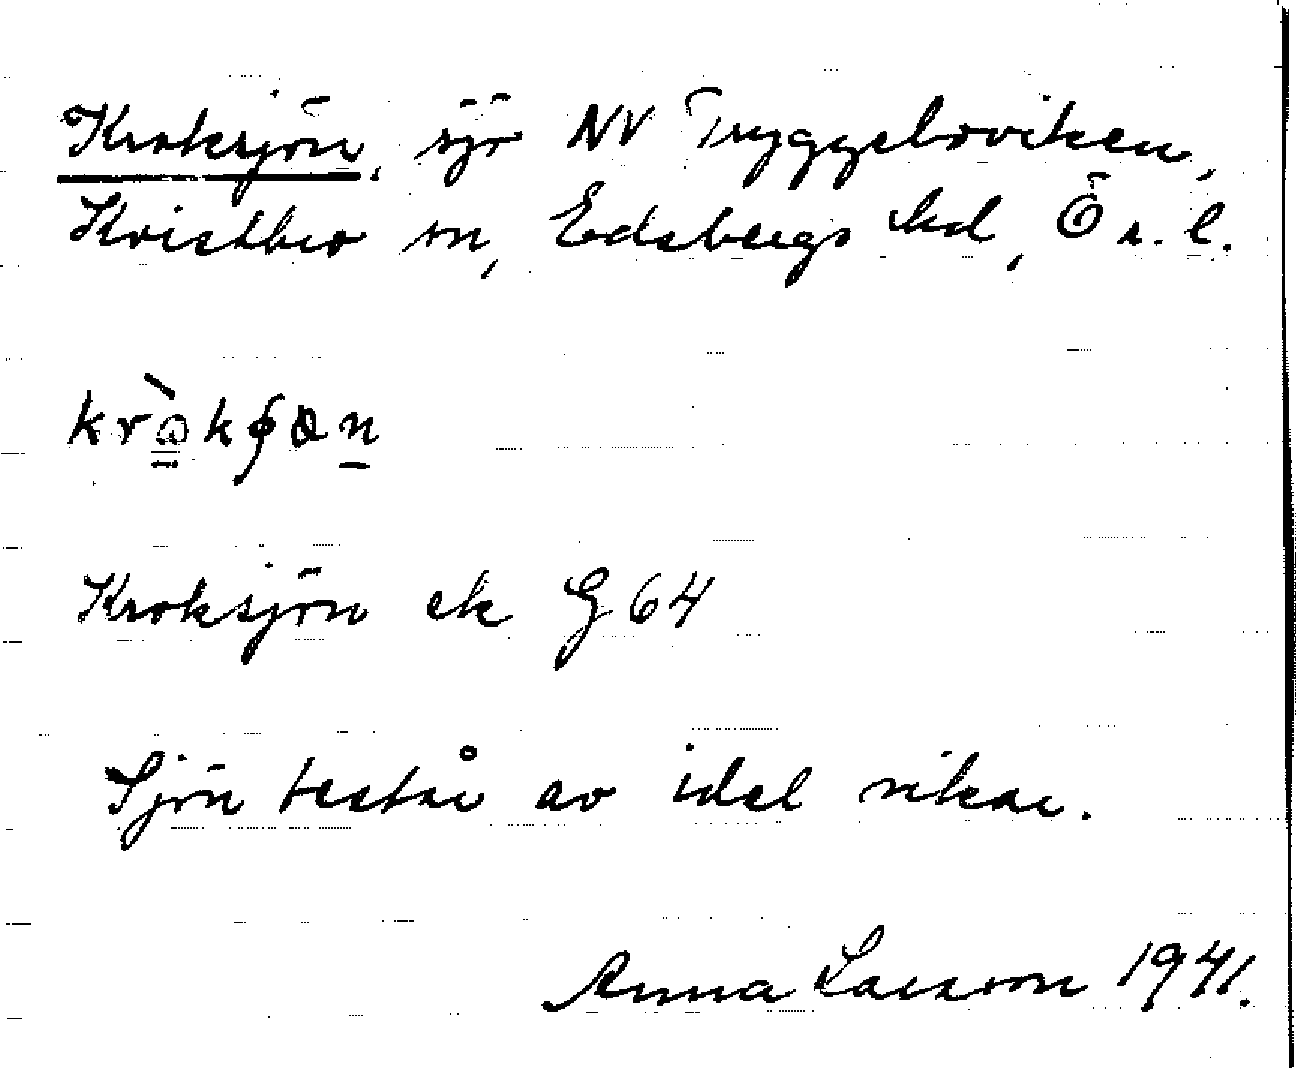 Kroksjön, sjö NV Tryggeboviken,
Kvistbro sn, Edsbergs hd, Ör. l.
Kroksjön ek G 64
Sjön består av idel vikar.
Anna Larsson 1941.